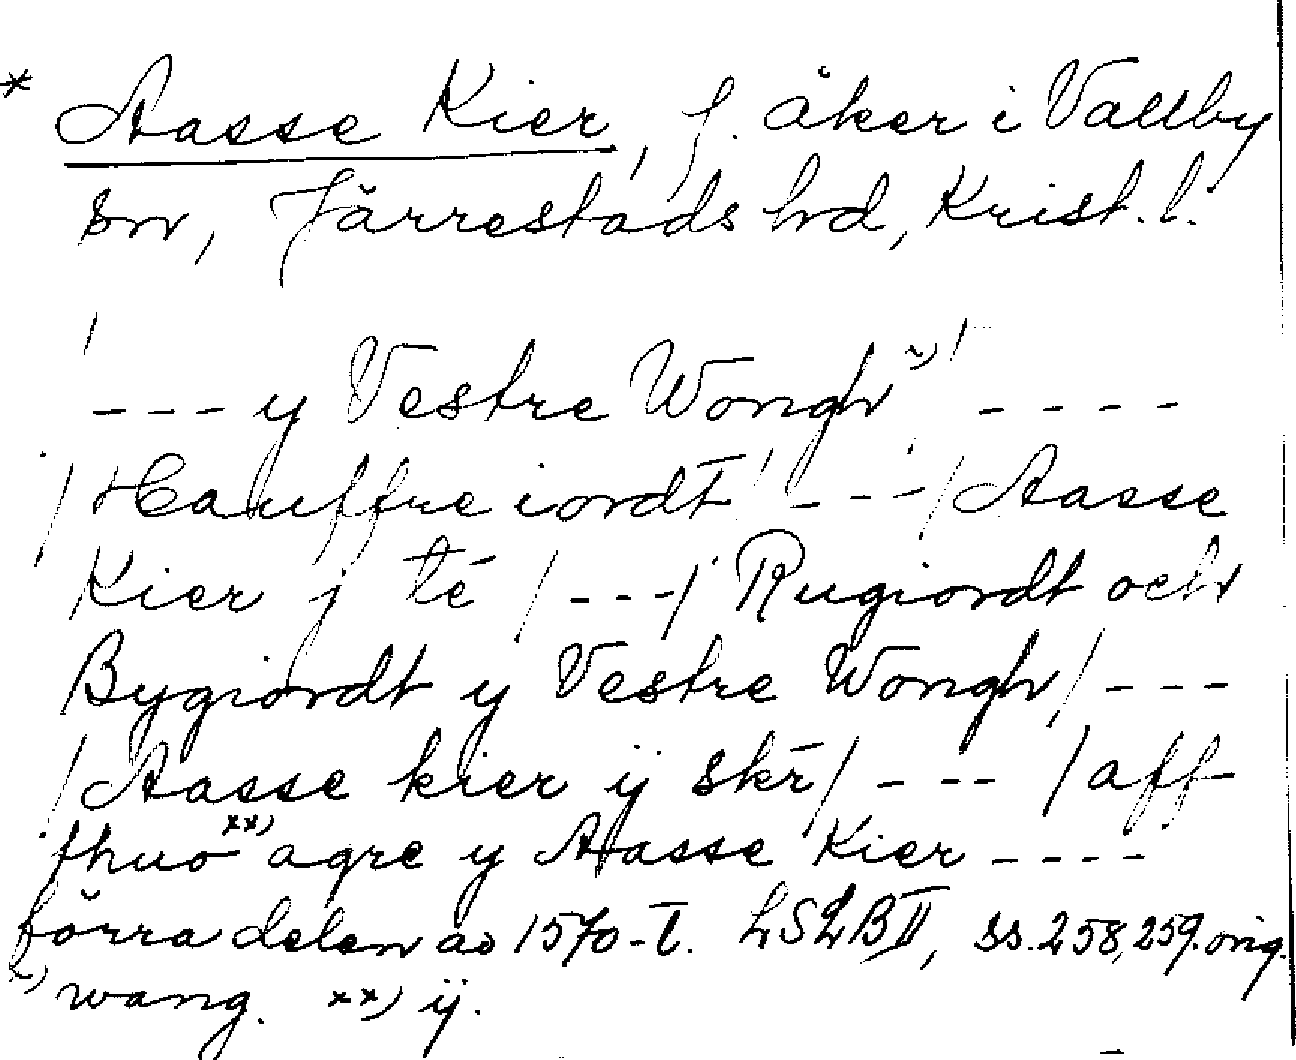 * Aasse Kier, f. åker i Vallby
sn, Järrestads hd, Krist. l.
/
- - - y Vestre Wongh x) / - - - -
/ Hauffre iordt / - - - / Aasse
Kier j té / - - - / Rugiordt och
Bygiordt y Vestre Wongh / - - -
/ Aasse kier ij skr̄ / - - - / aff
thuo xx) agre y Aasse Kier - - - -
förra delen av 1570-t. LSLB II, ss. 258, 259. orig.
x) wang. xx) ij.